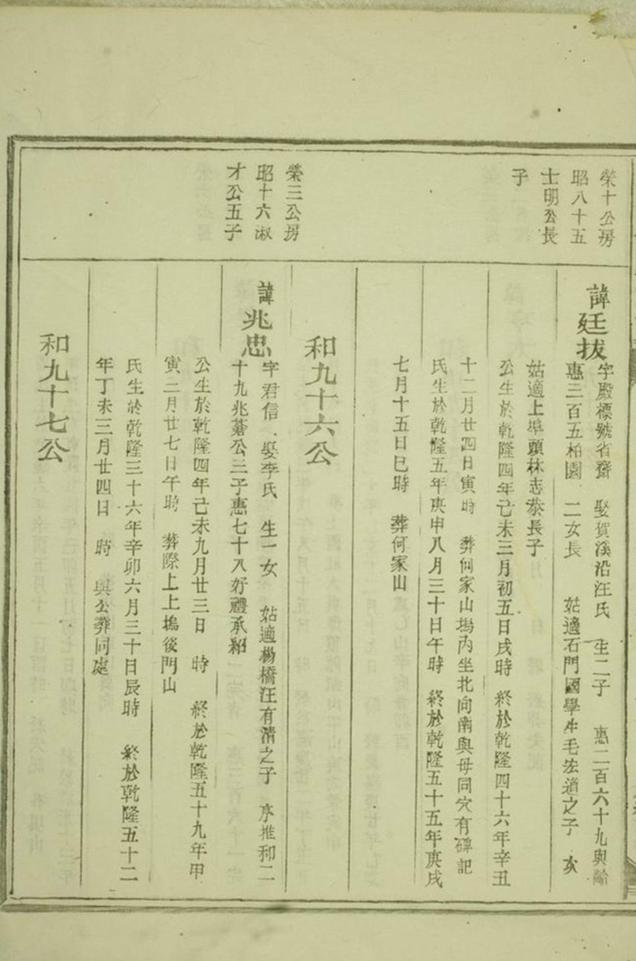 榮十公房
昭八十五
士明公長
子
諱廷拔
字殿標號省齋 娶賀溪沿汪氏 生二子 惠二百六十九與齡
惠三百五柏園 二女長 姑適石門國學生毛宏道之子 次
姑適上埠頭林志泰長子
公生於乾隆四年己未三月初五日戌時 終於乾隆四十六年辛丑
十二月廿四日寅時 葬何家山塢內坐北向南與母同穴有碑記
氏生於乾隆五年庚申八月三十日午時 終於乾隆五十五年庚戌
七月十五日巳時 葬何家山
榮三公房
昭十六淑
才公五子
和九十六公
諱兆忠
字君信 娶李氏 生一女 姑適楊橋汪有清之子 序推和二
十九兆蒼公三子惠七十八好禮承紹
公生於乾隆四年己未九月廿三日 時 終於乾隆五十九年甲
寅二月廿七日午時 葬際上上塢後門山
氏生於乾隆三十六年辛卯六月三十日辰時 終於乾隆五十二
年丁未三月廿四日 時 與公葬同處
和九十七公